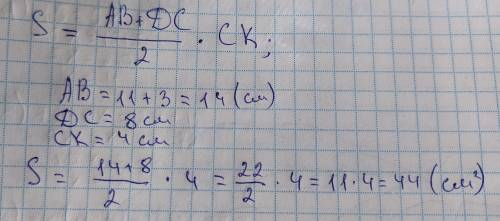 S = (AB+DC)/2 · CK;
AB = 11+3 = 14 (см)
DC = 8 см
CK = 4 см
S = (14+8)/2 · 4 = 22/2 · 4 = 11·4 = 44 (см²)